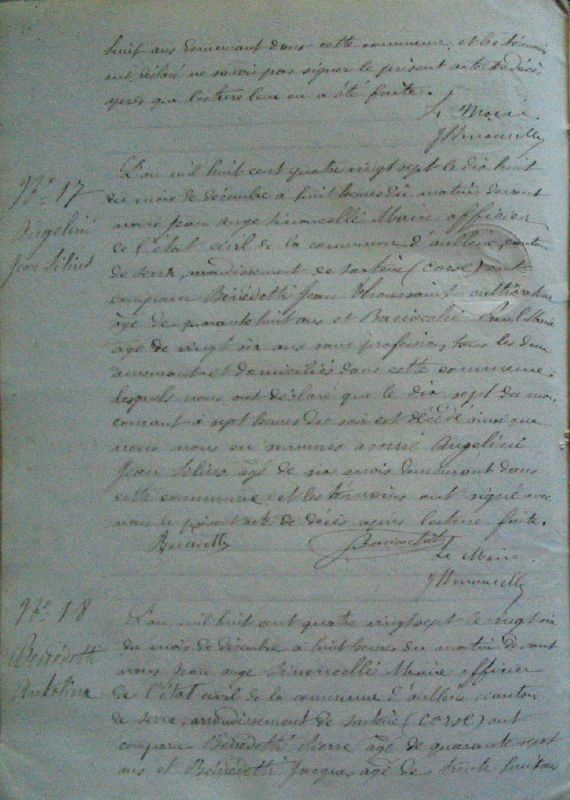 huit ans demeurant dans cette commune, et les témoins
ont déclaré ne savoir pas signer le présent acte de décès
après que lecture leur en a été faite.
Le Maire
N° 17
Angelini
Jean
L'an mil huit cent quatre vingt sept le dix huit
du mois de décembre à huit heures du matin devant
nous Jean Ange Simoncelli Maire officier
de l'état civil de la commune d'aullene, canton
de serra, arrondissement de sartène (corse) ont
comparu Bénédetti Jean Thoussaint cultivateur
âgé de quarante huit ans et Paul Marie
âgé de vingt six ans sans profession, tous les deux
demeurant et domiciliés dans cette commune,
lesquels nous ont déclaré que le dix sept du mois
courant à sept heures du soir est décédé ainsi que
nous nous en sommes assuré Angelini
Jean âgé de six mois demeurant dans
cette commune, et les témoins ont signé avec
nous le présent acte de décès après lecture faite.
Le Maire
N° 18
Bénédetti
Antolina
L'an mil huit cent quatre vingt sept le vingt six
du mois de décembre à huit heures du matin devant
nous Jean ange Simoncelli Maire officier
de l'état civil de la commune d'aullene canton
de serra, arrondissement de sartène (corse) ont
comparu Bénédetti Pierre âgé de quarante sept
ans et Bénédetti Jacques âgé de trente huit ans